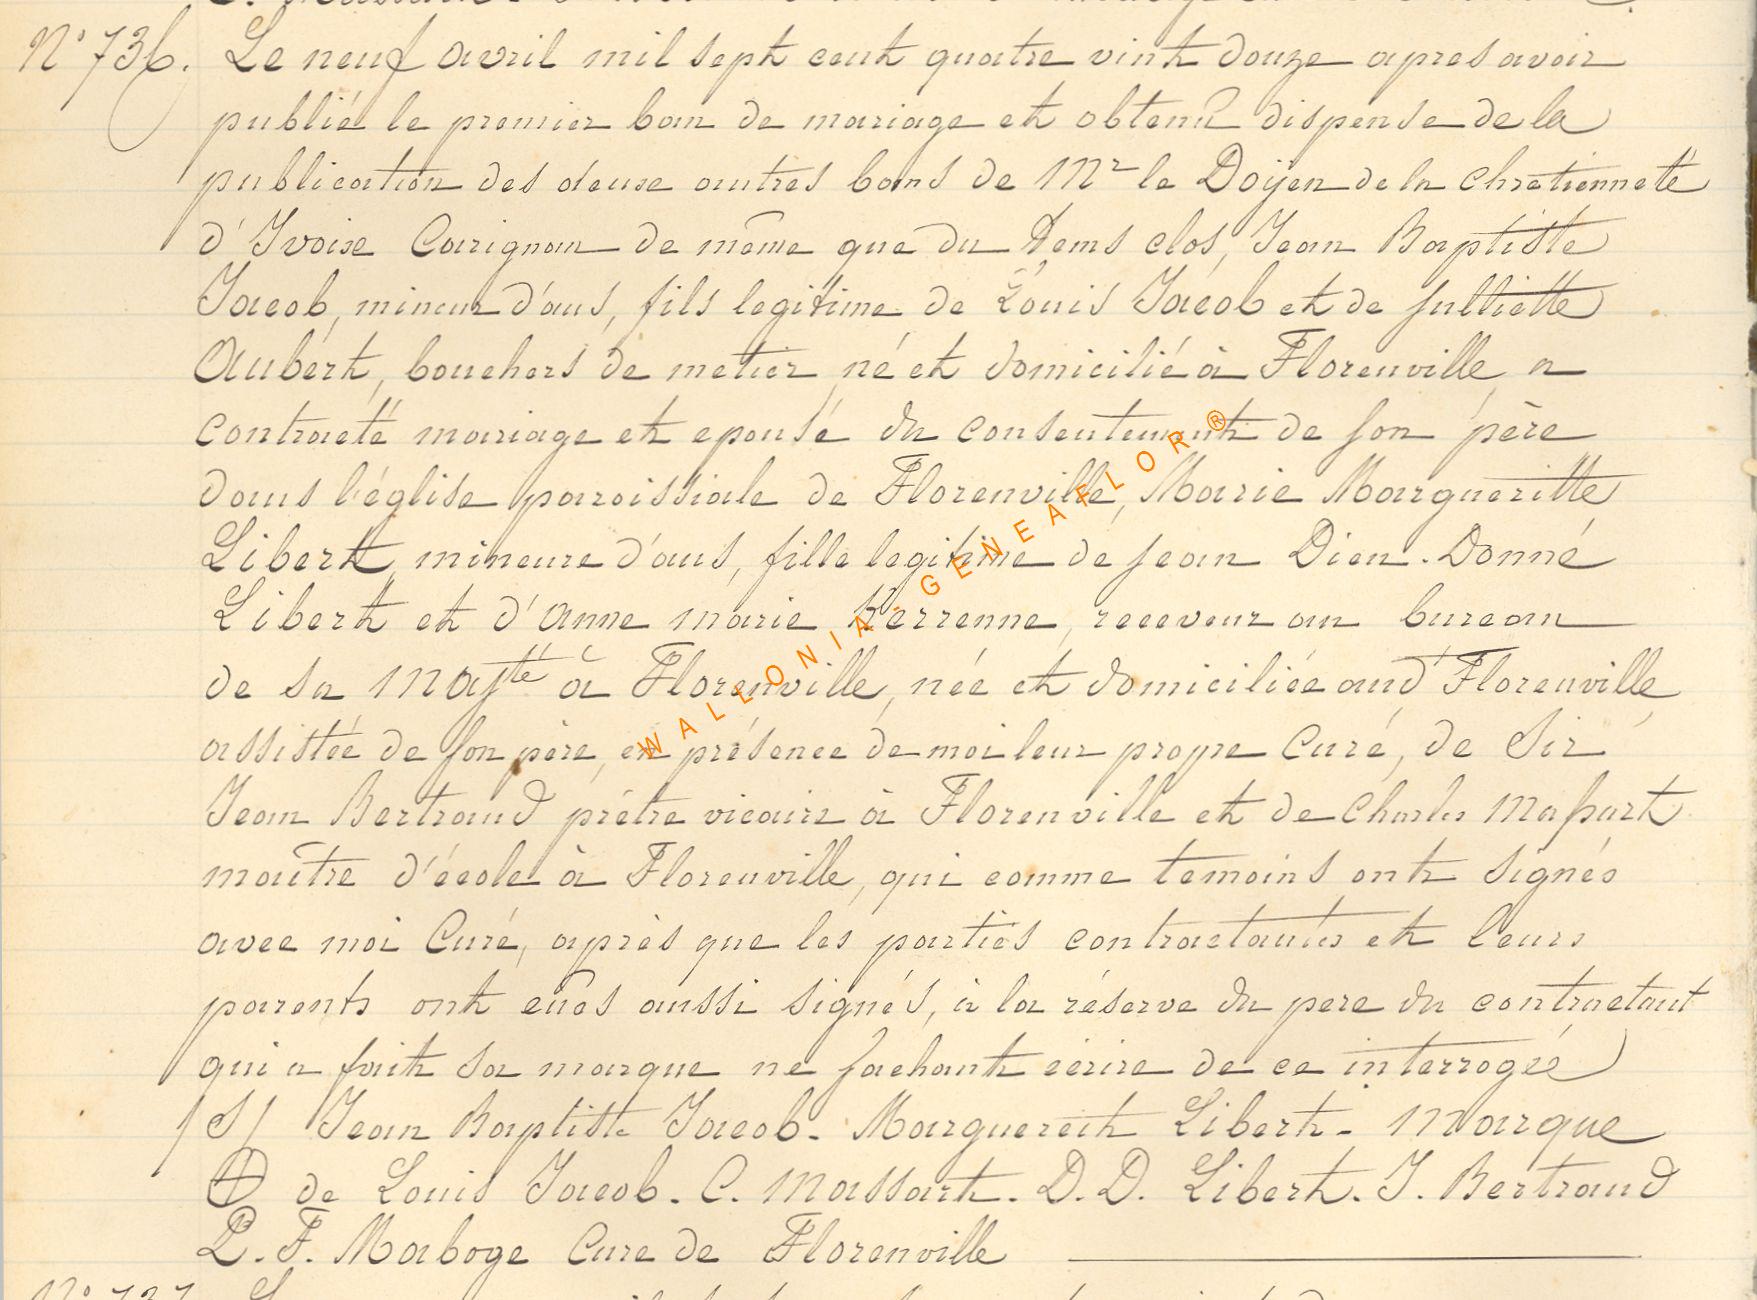 N° 736. Le neuf avril mil sept cent quatre vint douze apres avoir
publié le premier ban de mariage et obtenu dispense de la
publication des deux autres bans de Mr le Doÿen de la chrétienneté
d'Ivoise Carignan de même que du Tems clos, Jean Baptiste
Jacob, mineur d'ans, fils legitime de Louis Jacob et de Julliette
Aubert, bouchers de metier, né et domicilié à Florenville, a
contracté mariage et epousé du consentement de son père
dans l'église paroissiale de Florenville, Marie Margueritte
Libert, mineure d'ans, fille legitime de Jean Dieu-Donné
Libert et d'Anne marie Kerrenne, receveur au bureau
de sa Majté à Florenville, née et domiciliée aud' Florenville
assistée de son père, en présence de moi leur propre Curé, de Sir
Jean Bertrand prêtre vicaire à Florenville et de Charles Massart
maître d'école à Florenville, qui comme temoins ont signés
avec moi Curé, après que les parties contractantes et leurs
parents ont eûes aussi signés, à la réserve du pere du contractant
qui a fait sa marque ne sachant écrire de ce interrogé
/S/ Jean Baptiste Jacob. Marguereit Libert - Marque
de Louis Jacob. C. Massart. D. D. Libert. J. Bertrand
P. F. Maboge Cure de Florenville
N° 737
WALLONIA-GENEAFLOR®